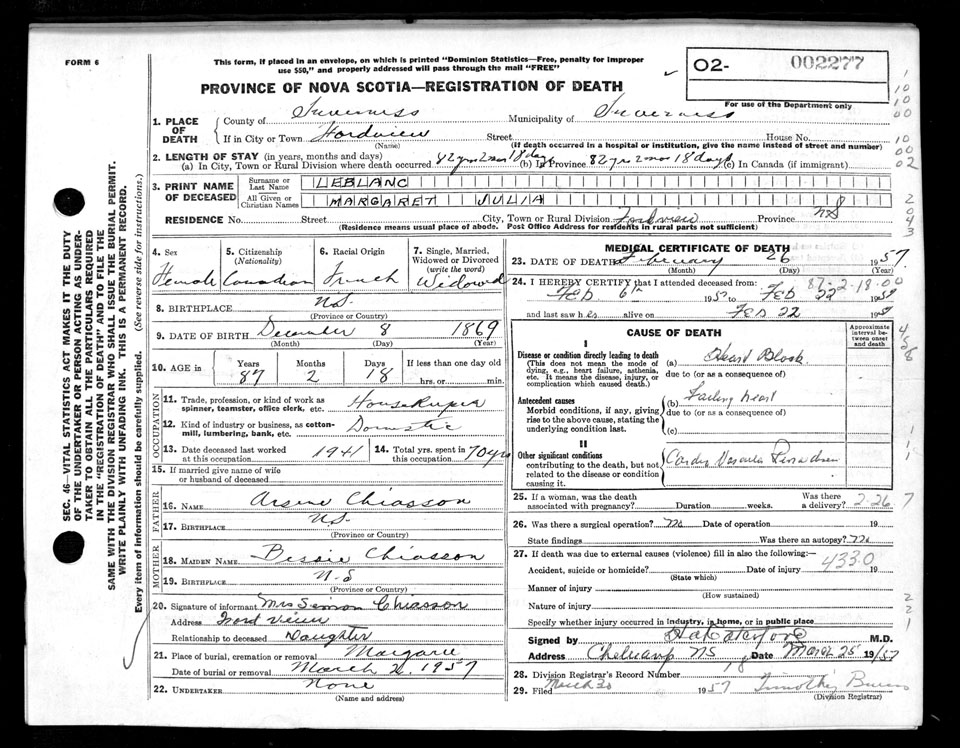 FORM 6
This form, if placed in an envelope, on which is printed "Dominion Statistics—Free, penalty for improper
use $50," and properly addressed will pass through the mail "FREE"
PROVINCE OF NOVA SCOTIA—REGISTRATION OF DEATH
O2- 002277
For use of the Department only
1. PLACE OF DEATH
County of Inverness Municipality of Inverness
If in City or Town Fordview Street House No.
(Name) (If death occurred in a hospital or institution, give the name instead of street and number)
2. LENGTH OF STAY (in years, months and days)
(a) In City, Town or Rural Division where death occurred 82 yrs 2 mos 18 days (b) In Province 82 yrs 2 mos 18 days (c) In Canada (if immigrant)
3. PRINT NAME OF DECEASED
Surname or Last Name LEBLANC
All Given or Christian Names MARGARET JULIA
RESIDENCE No. Street City, Town or Rural Division Fordview Province NS
(Residence means usual place of abode. Post Office Address for residents in rural parts not sufficient)
4. Sex 5. Citizenship (Nationality) 6. Racial Origin 7. Single, Married, Widowed or Divorced (write the word)
Female Canadian French Widowed
8. BIRTHPLACE NS.
(Province or Country)
9. DATE OF BIRTH December 8 1869
(Month) (Day) (Year)
10. AGE in Years Months Days If less than one day old
87 2 18 hrs. or min.
OCCUPATION
11. Trade, profession, or kind of work as spinner, teamster, office clerk, etc. Housekeeper
12. Kind of industry or business, as cotton-mill, lumbering, bank, etc. Domestic
13. Date deceased last worked at this occupation 1941 14. Total yrs. spent in this occupation 70 yrs
15. If married give name of wife or husband of deceased
FATHER
16. NAME Arsene Chiasson
17. BIRTHPLACE NS.
(Province or Country)
MOTHER
18. MAIDEN NAME Bessie Chiasson
19. BIRTHPLACE N-S
(Province or Country)
20. Signature of informant Mrs Simon Chiasson
Address Ford View
Relationship to deceased Daughter
21. Place of burial, cremation or removal Margaree
Date of burial or removal March 2. 1957
22. UNDERTAKER None
(Name and address)
MEDICAL CERTIFICATE OF DEATH
23. DATE OF DEATH February 26 1957.
(Month) (Day) (Year)
24. I HEREBY CERTIFY that I attended deceased from: 87-2-18-00
Feb 6th 1957 to Feb 22 1957
and last saw her alive on Feb 22 1957
CAUSE OF DEATH
Approximate interval between onset and death
I
Disease or condition directly leading to death
(This does not mean the mode of dying, e.g., heart failure, asthenia, etc. It means the disease, injury, or complication which caused death.)
(a) Heart Block
due to (or as a consequence of)
Antecedent causes
Morbid conditions, if any, giving rise to the above cause, stating the underlying condition last.
(b) Failing heart
due to (or as a consequence of)
(c)
II
Other significant conditions
contributing to the death, but not related to the disease or condition causing it.
Cardio Vascular
25. If a woman, was the death associated with pregnancy? Duration weeks. Was there a delivery? 2-26 7
26. Was there a surgical operation? No Date of operation 19
State findings Was there an autopsy? No
27. If death was due to external causes (violence) fill in also the following:—
Accident, suicide or homicide? Date of injury 19
(State which) 4330
Manner of injury
(How sustained)
Nature of injury
Specify whether injury occurred in industry, in home, or in public place
Signed by M.D.
Address Cheticamp NS Date March 25 1957
28. Division Registrar's Record Number 18
29. Filed March 30 1957 Timothy
(Division Registrar)
SEC. 46—VITAL STATISTICS ACT MAKES IT THE DUTY
OF THE UNDERTAKER OR PERSON ACTING AS UNDER-
TAKER TO OBTAIN ALL THE PARTICULARS REQUIRED
IN THE "REGISTRATION OF DEATH" AND TO FILE THE
SAME WITH THE DIVISION REGISTRAR WHO SHALL ISSUE THE BURIAL PERMIT.
WRITE PLAINLY WITH UNFADING INK. THIS IS A PERMANENT RECORD.
Every item of information should be carefully supplied. (See reverse side for instructions.)